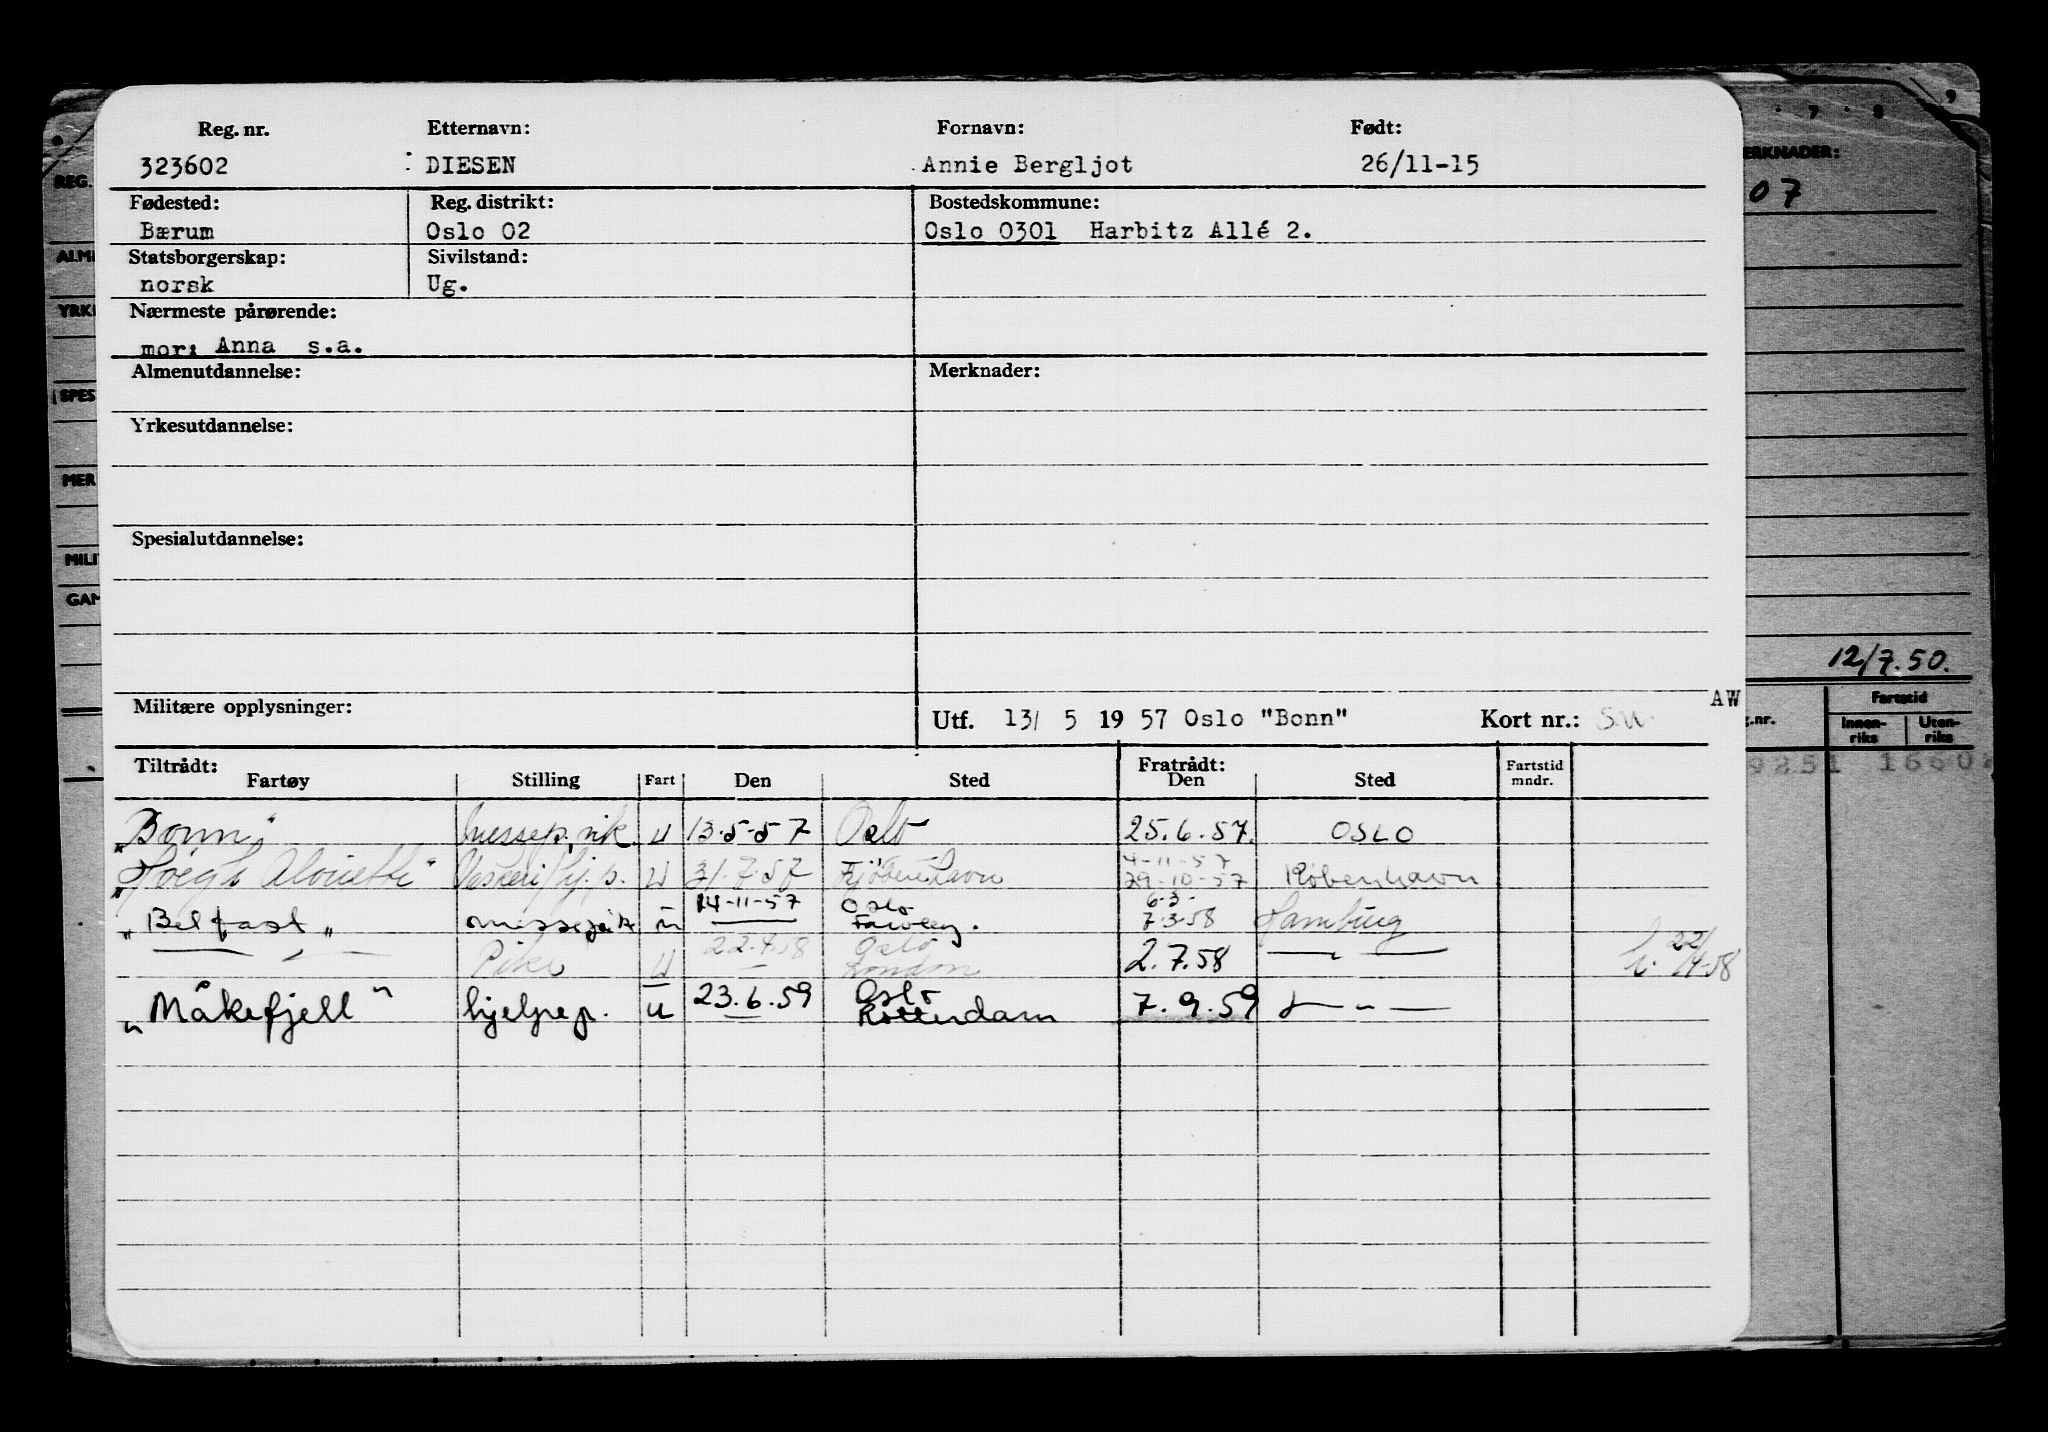 Reg. nr. Etternavn: Fornavn: Født:
323602 DIESEN Annie Bergljot 26/11-15
Fødested: Reg. distrikt: Bostedskommune:
Bærum Oslo 02 Oslo 0301 Harbitz Allé 2.
Statsborgerskap: Sivilstand:
norsk Ug.
Nærmeste pårørende:
mor: Anna s.a.
Almenutdannelse: Merknader:
Yrkesutdannelse:
Spesialutdannelse:
Militære opplysninger: Utf. 13/ 5 19 57 Oslo "Bonn" Kort nr.: S.U. AW
Tiltrådt: Fratrådt: Fartstid
Fartøy Stilling Fart Den Sted Den Sted mndr.
"Bonn" messep. vik. u 13.5-57 Oslo 25.6.57. OSLO
4-11-57
"Høegh Alouette" u 31.7.57 29-10-57 København
14-11-57 Oslo 6-3-
"Belfast" messepike u 7.3.58 Hamburg
22.4.58 Oslo 22/
Pike u London 2.7.58 — 4-58
23.6.59 Oslo
"Måkefjell" hjelpep. u Rotterdam 7.9.59 — " —
REG.
ALM
YRK
SPES
MER
MILI
GAN
7 8 9
ERKNADER:
07
12/7.50.
Fartstid
g.nr. Innen-riks Uten-riks
9251 16602